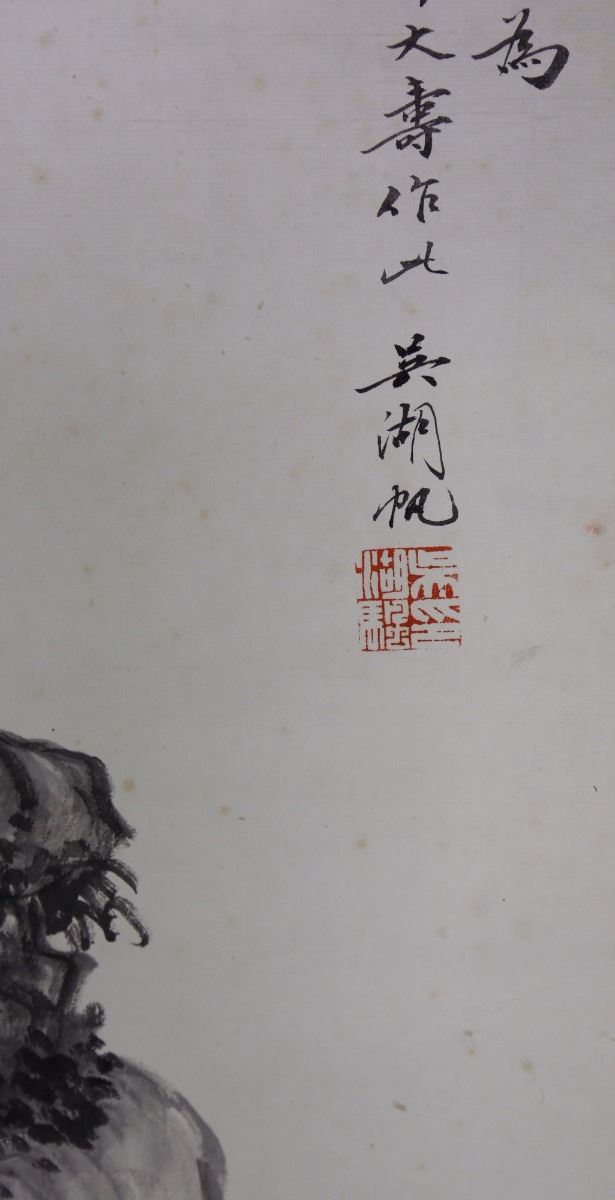 為
大壽作此 吳湖帆
吳湖驅印